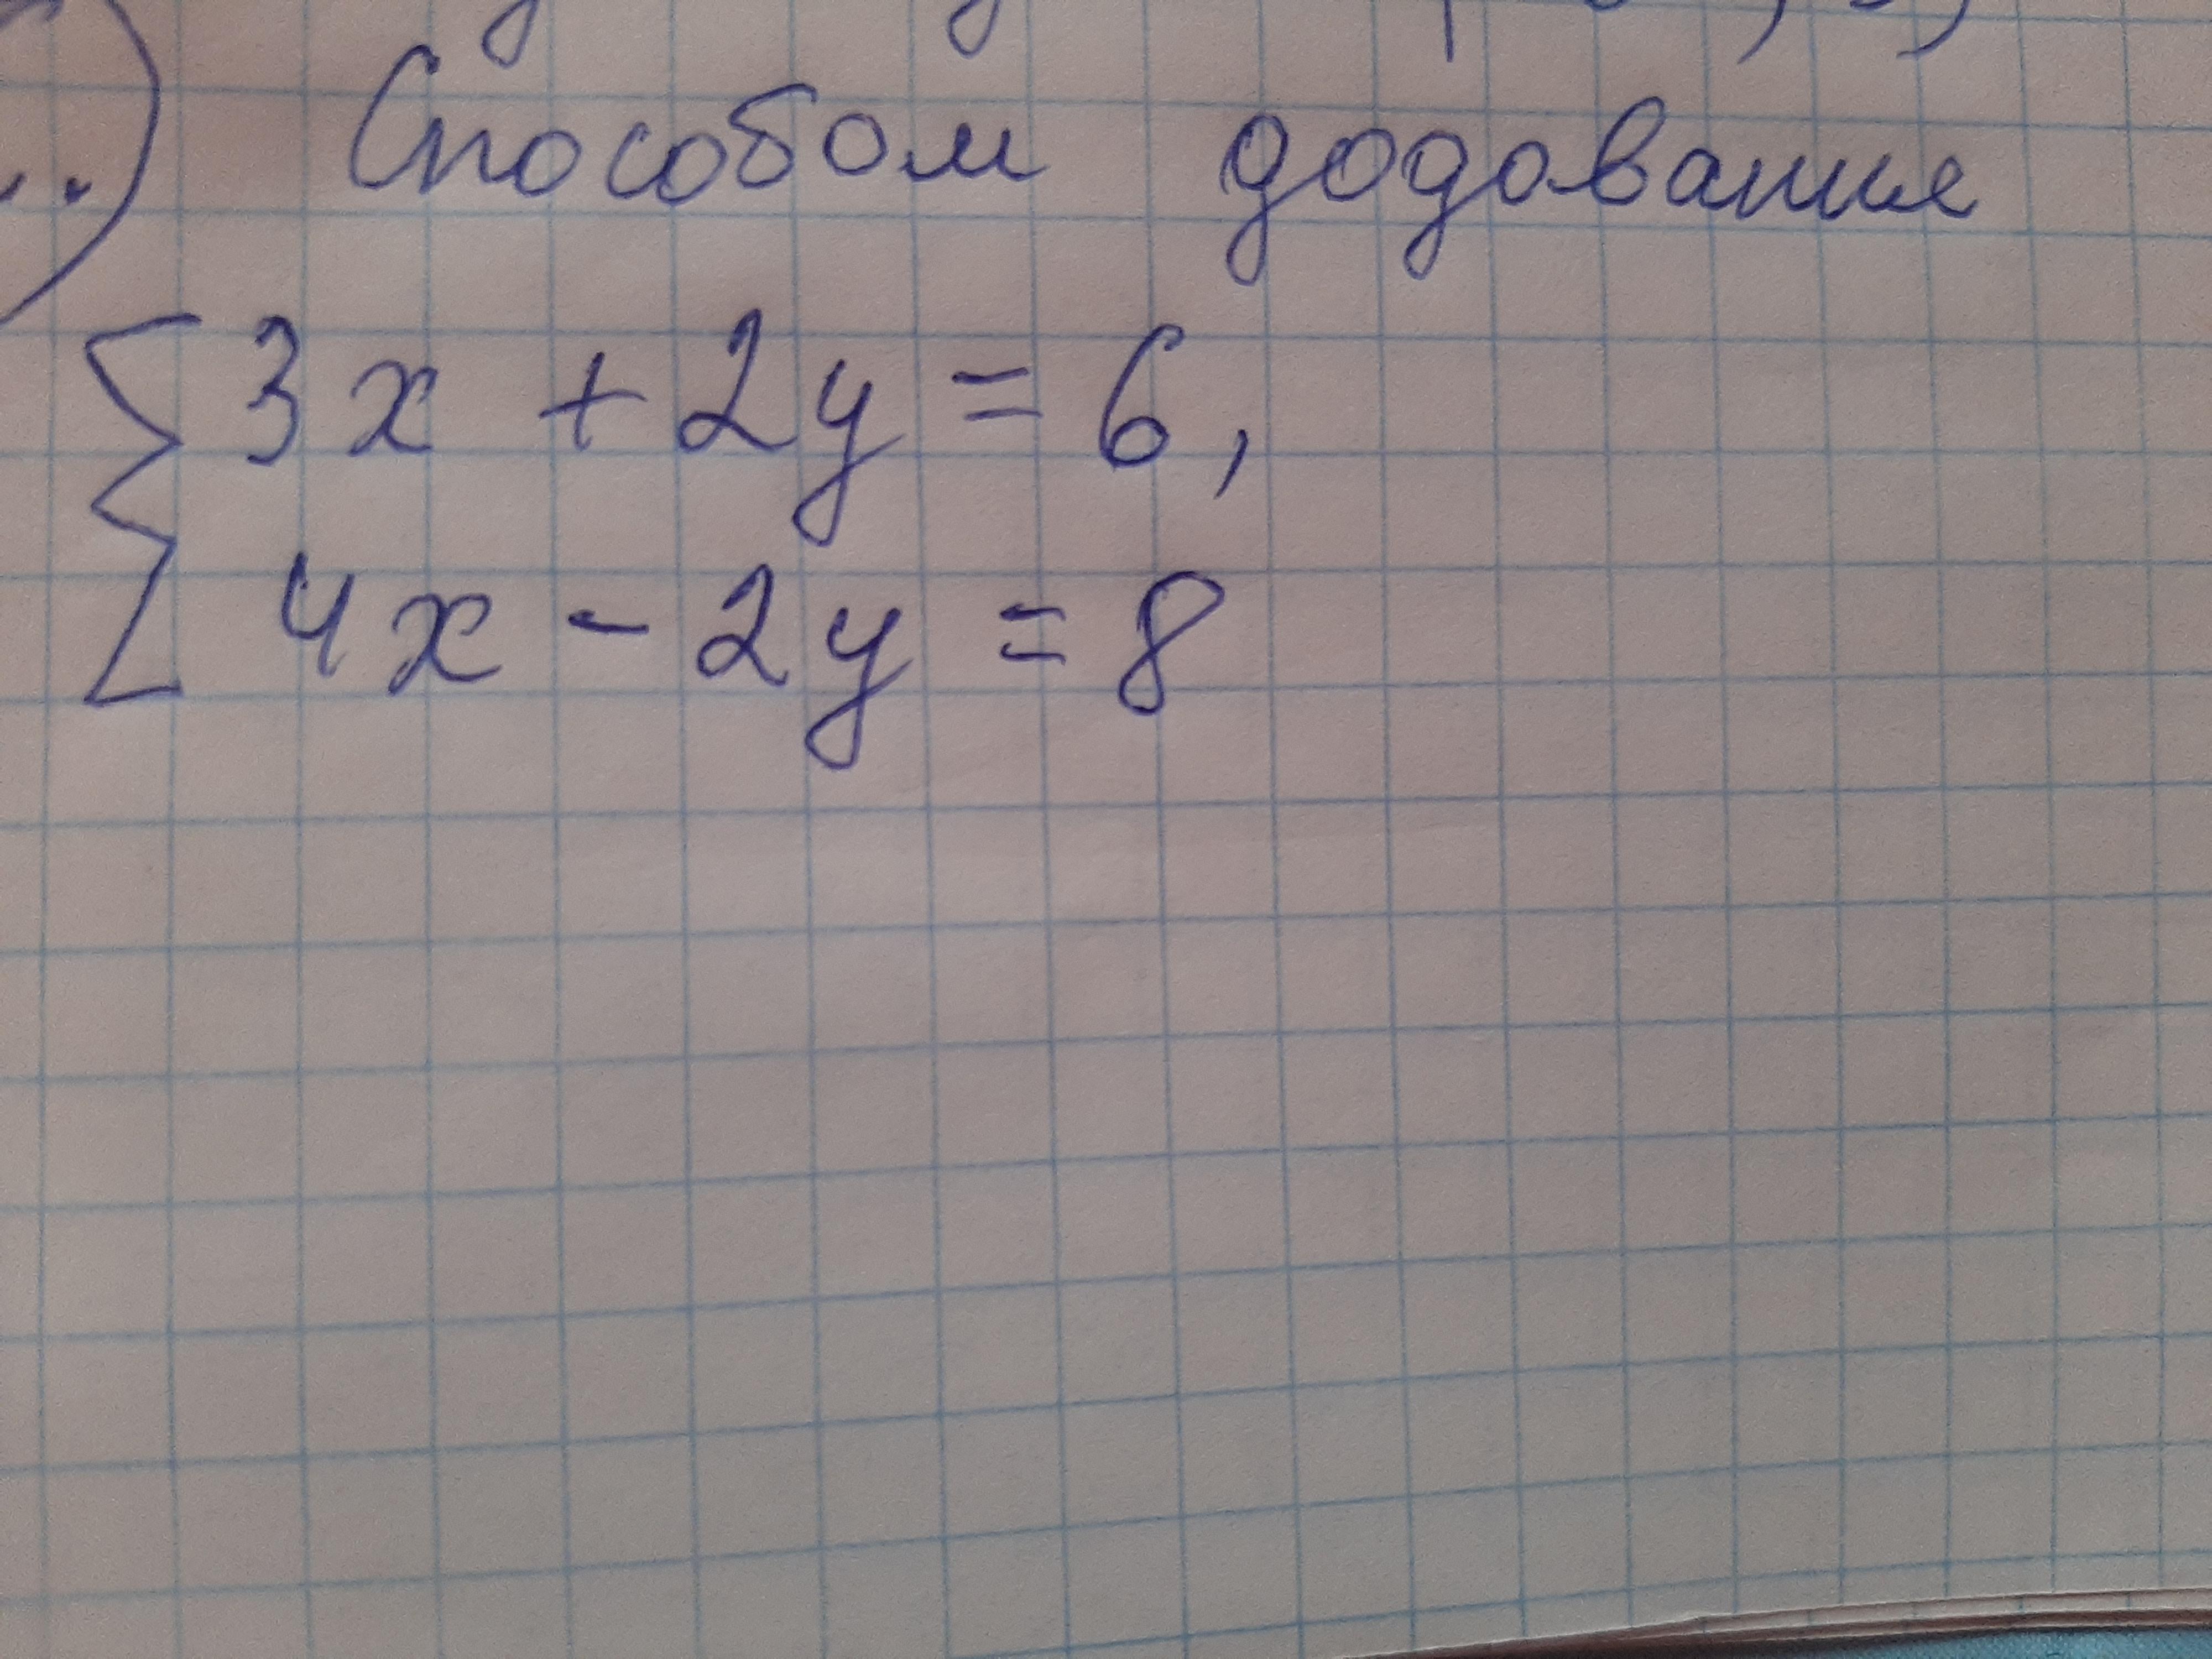 Способом додавання
3x + 2y = 6,
4x - 2y = 8